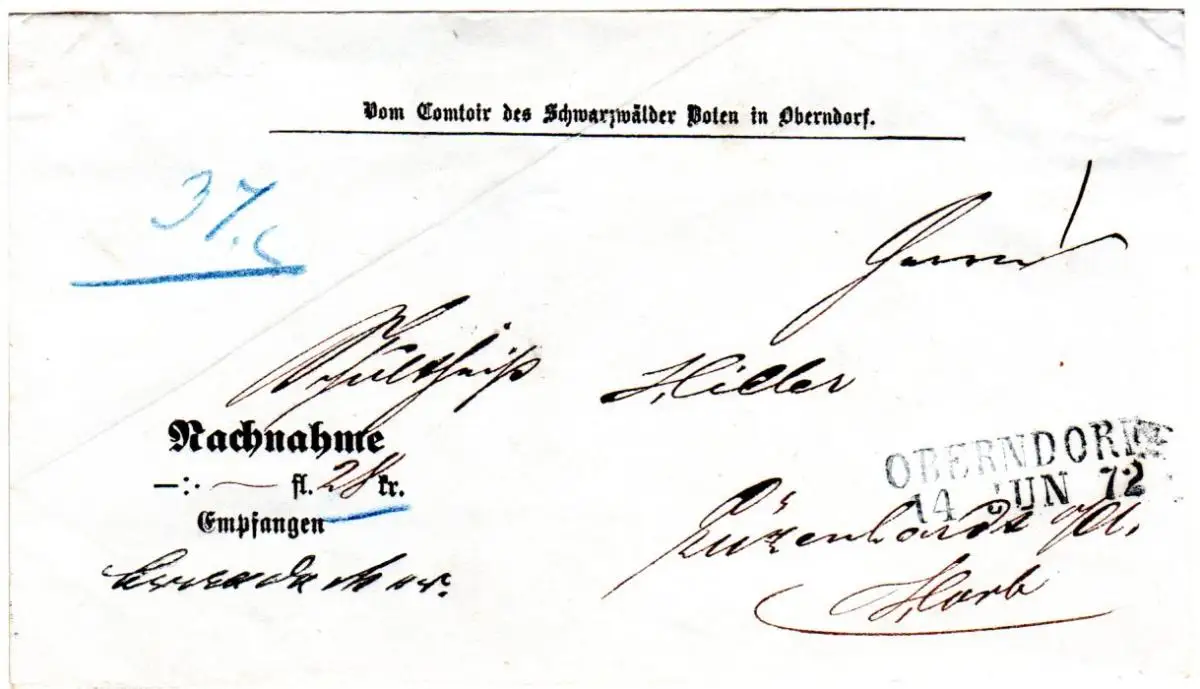 Vom Comtoir des Schwarzwälder Boten in Oberndorf.
37.
Herrn
Schultheiß Hiller
Nachnahme
—:· — fl. 28 kr.
Empfangen
OBERNDORF
14 JUN 72
Lützenhardt
Horb